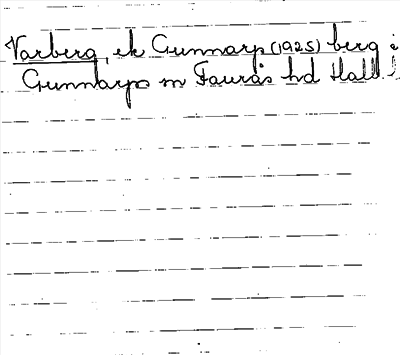 Varberg, ek Gunnarp (1925) berg i
Gunnarps sn Faurås hd Hall.